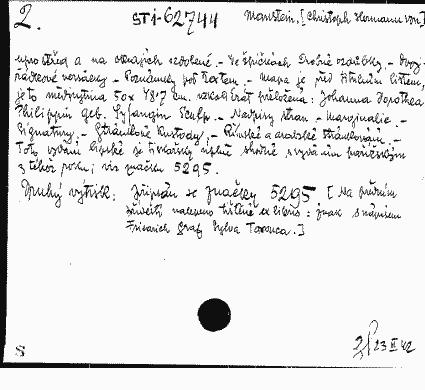 2. ST1-62744 Manstein, [Christoph Hermann von]
uprostřed a na okrajích zdobené. - Ve špičkách drobné ozdůbky. - Dvoj-
řádkové versálky. - Poznámky pod textem. - Mapa je před titulním listem,
je to mědirytina 50x 48'7 cm. několikrát přeložená: Johanna Dorothea
Philippin geb. Sysangin Sculp. - Nadpisy stran. - Marginalie. -
Signatury. - Stránkové kustody. - Římské a arabské stránkování. -
Toto vydání lipské je tiskařsky úplně shodné s vydáním pařížským
z téhož roku; viz značku 5295.
Druhý výtisk: Připsán ke značky 5295 [Na předním
přídeští nalepeno tištěné ex libris: znak s nápisem
Friedrich Graf Sylva Tarouca.]
23 III 42
S